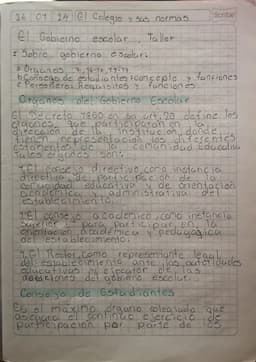 26 01 24 El Colegio y sus normas
Scribe
El Gobierno escolar. Taller
Sobre gobierno escolar:
a Organos
b Consejo de estudiantes: concepto y funciones
c Personero: Requisitos y funciones
Organos del Gobierno Escolar
El Decreto 1860 en su art. 20 define los
organos que participaran en la
dirección de la institucion, donde
tienen representación los diferentes
estamentos de la comunidad Educativa
Tales organos son:
1. El consejo directivo, como instancia
directiva, de participación de la
comunidad educativa y de orientación
academica y administrativa del
establecimiento.
2. El consejo academico, como instancia
superior para participar en la
orientación academica y pedagógica
del establecimiento.
3. El Rector, como representante legal
del establecimiento ante las autoridades
educativas y ejecutor de las
decisiones del gobierno escolar.
Consejo de Estudiantes
Es el máximo órgano colegiado que
asegura el continuo ejercicio de
participación por parte de los